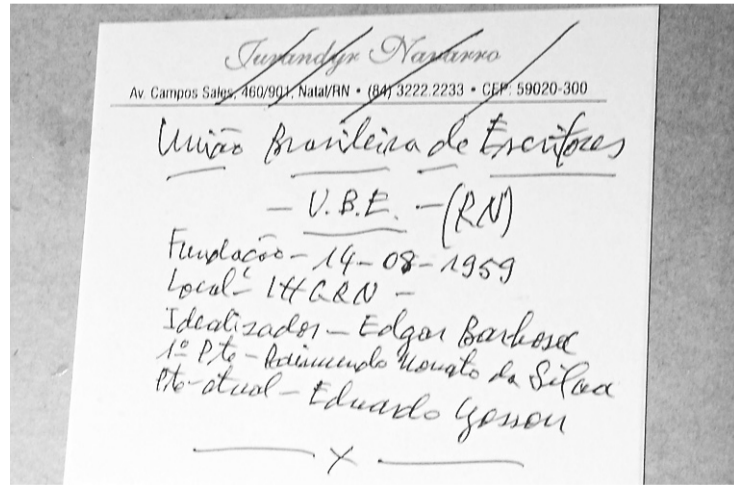 Jurandyr Navarro
Av. Campos Sales, 460/901, Natal/RN • (84) 3222.2233 • CEP: 59020-300
União Brasileira de Escritores
— U.B.E. — (RN)
Fundação — 14-08-1959
Local — IHGRN —
Idealizador — Edgar Barbosa
1º Pte — Raimundo Nonato da Silva
Pte-atual — Eduardo Gosson
— x —